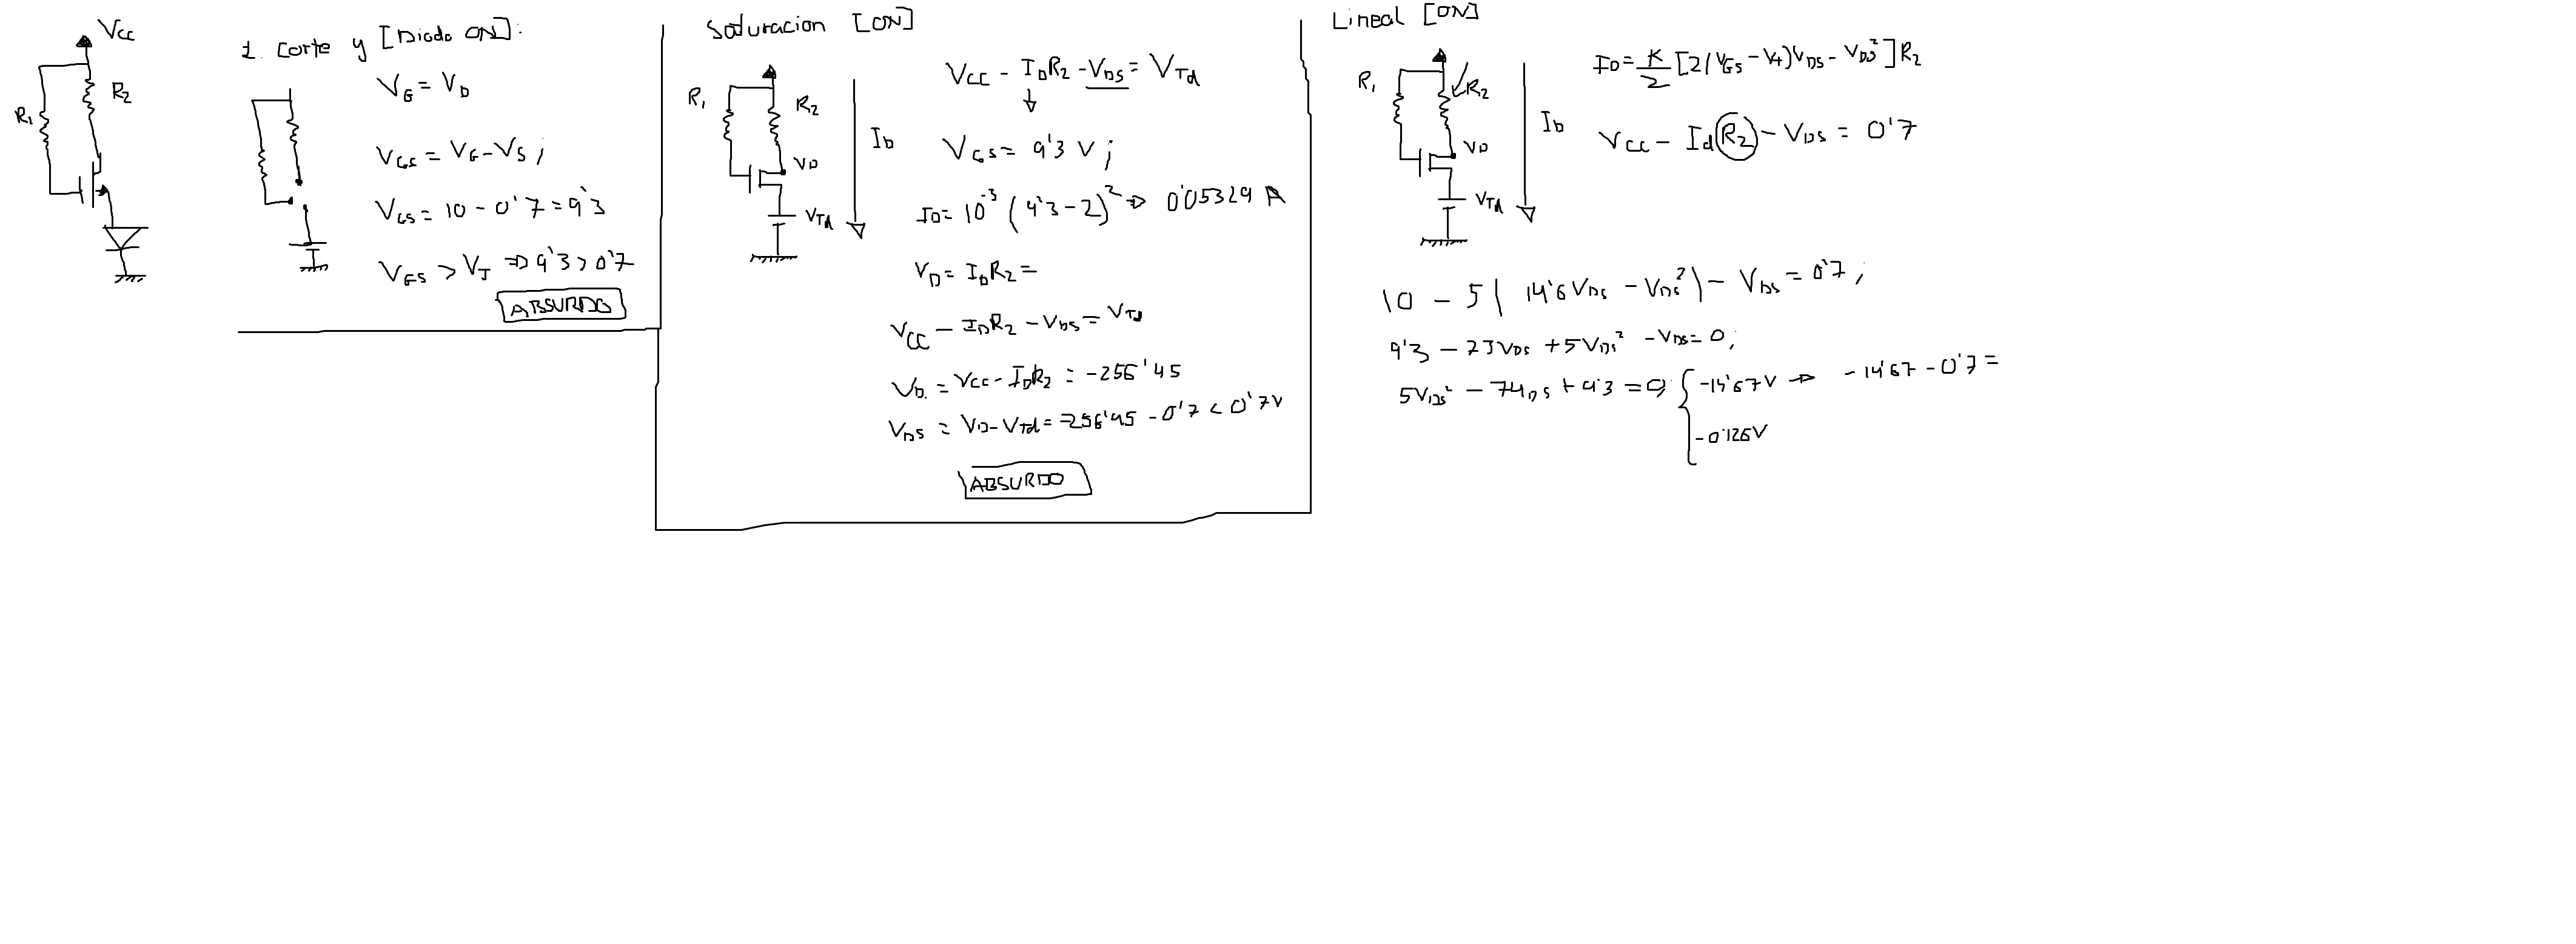 Vcc
R1
R2
1. Corte y [Diodo ON]:
VG = VD
VGS = VG - VS ;
VGS = 10 - 0'7 = 9'3
VGS > VT => 9'3 > 0'7
ABSURDO
Saduracion [ON]
R1
R2
VD
VTd
ID
VCC - IDR2 - VDS = VTd
VGS = 9'3 V ;
ID = 10^-3 (9'3 - 2)^2 => 0'05329 A
VD = IDR2 =
VCC - IDR2 - VDS = VTd
VD. = VCC - IDR2 = -256'45
VDS = VD - VTd = -256'45 - 0'7 < 0'7V
ABSURDO
Lineal [ON]
R1
R2
VD
VTd
ID
ID = K/2 [2(VGS - Vt)VDS - VDS^2] R2
VCC - Id R2 - VDS = 0'7
10 - 5( 14'6 VDS - VDS^2) - VDS = 0'7 ;
9'3 - 73VDS + 5VDS^2 - VDS = 0 ;
5VDS^2 - 74DS + 9'3 = 0 { -14'67V => -14'67 - 0'7 =
-0'126V